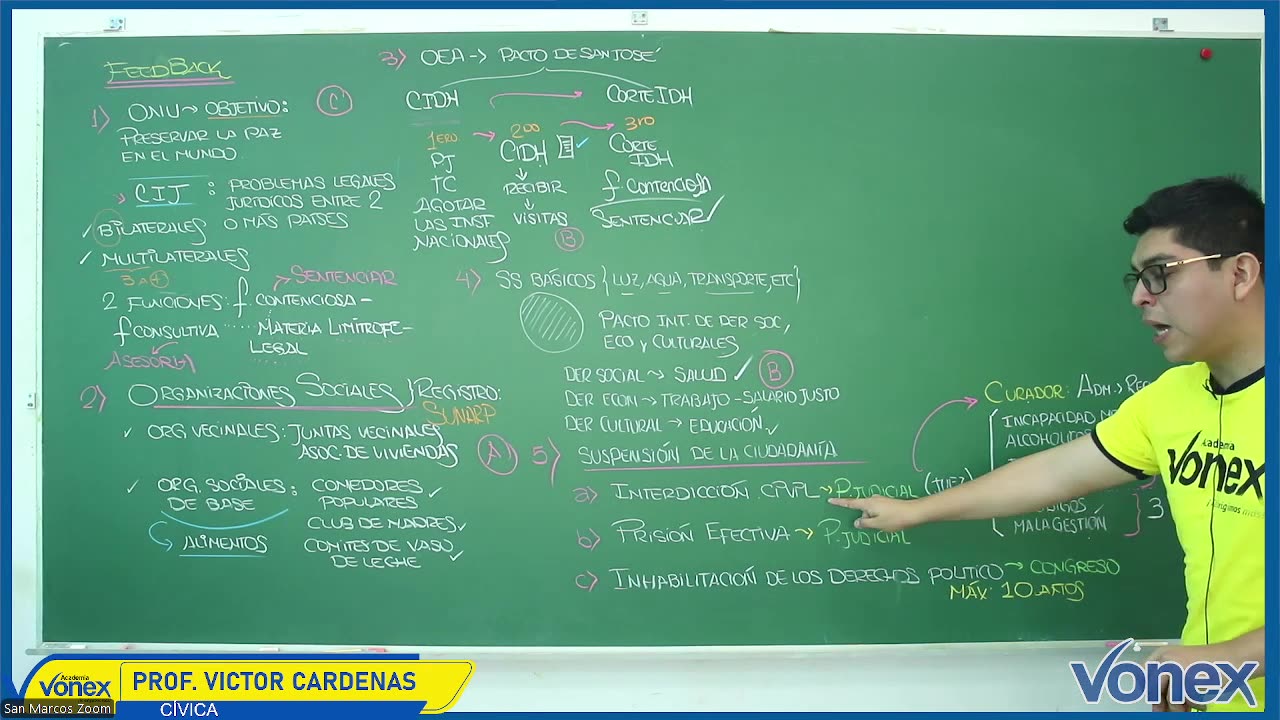 FEEDBACK
1) ONU → OBJETIVO:
PRESERVAR LA PAZ
EN EL MUNDO
C
CIJ : PROBLEMAS LEGALES
JURÍDICOS ENTRE 2
O MÁS PAÍSES
✓ BILATERALES
✓ MULTILATERALES
3 a +
SENTENCIAR
2 FUNCIONES: f. CONTENCIOSA -
f CONSULTIVA ..... MATERIA LIMÍTROFE-
LEGAL
ASESORIA
2) ORGANIZACIONES SOCIALES } REGISTRO:
SUNARP
✓ ORG VECINALES: JUNTAS VECINALES
ASOC. DE VIVIENDAS
A
✓ ORG. SOCIALES : COMEDORES ✓
DE BASE POPULARES
CLUB DE MADRES ✓
ALIMENTOS
COMITES DE VASO
DE LECHE ✓
3) OEA → PACTO DE SAN JOSÉ
CIDH → CORTE IDH
1ERO → 2DO → 3RO
PJ
TC
AGOTAR
LAS INST
NACIONALES
CIDH ✓
↓
RECIBIR
↓
VISITAS
B
CORTE
IDH
f. CONTENCIOSA
SENTENCIAR ✓
4) SS BÁSICOS { LUZ, AGUA, TRANSPORTE, ETC }
PACTO INT. DE DER SOC,
ECO y CULTURALES
DER SOCIAL → SALUD ✓
B
DER ECON → TRABAJO - SALARIO JUSTO
DER CULTURAL → EDUCACIÓN ✓
5) SUSPENSIÓN DE LA CIUDADANÍA
a) INTERDICCIÓN CIVIL → P. JUDICIAL (JUEZ)
b) PRISIÓN EFECTIVA → P. JUDICIAL
c) INHABILITACIÓN DE LOS DERECHOS POLITICO → CONGRESO
MÁX: 10 AÑOS
CURADOR: ADM.
INCAPACIDAD
MALA GESTIÓN
3
Academia
vonex
Academia
vonex
PROF. VICTOR CARDENAS
San Marcos Zoom
CÍVICA
vonex